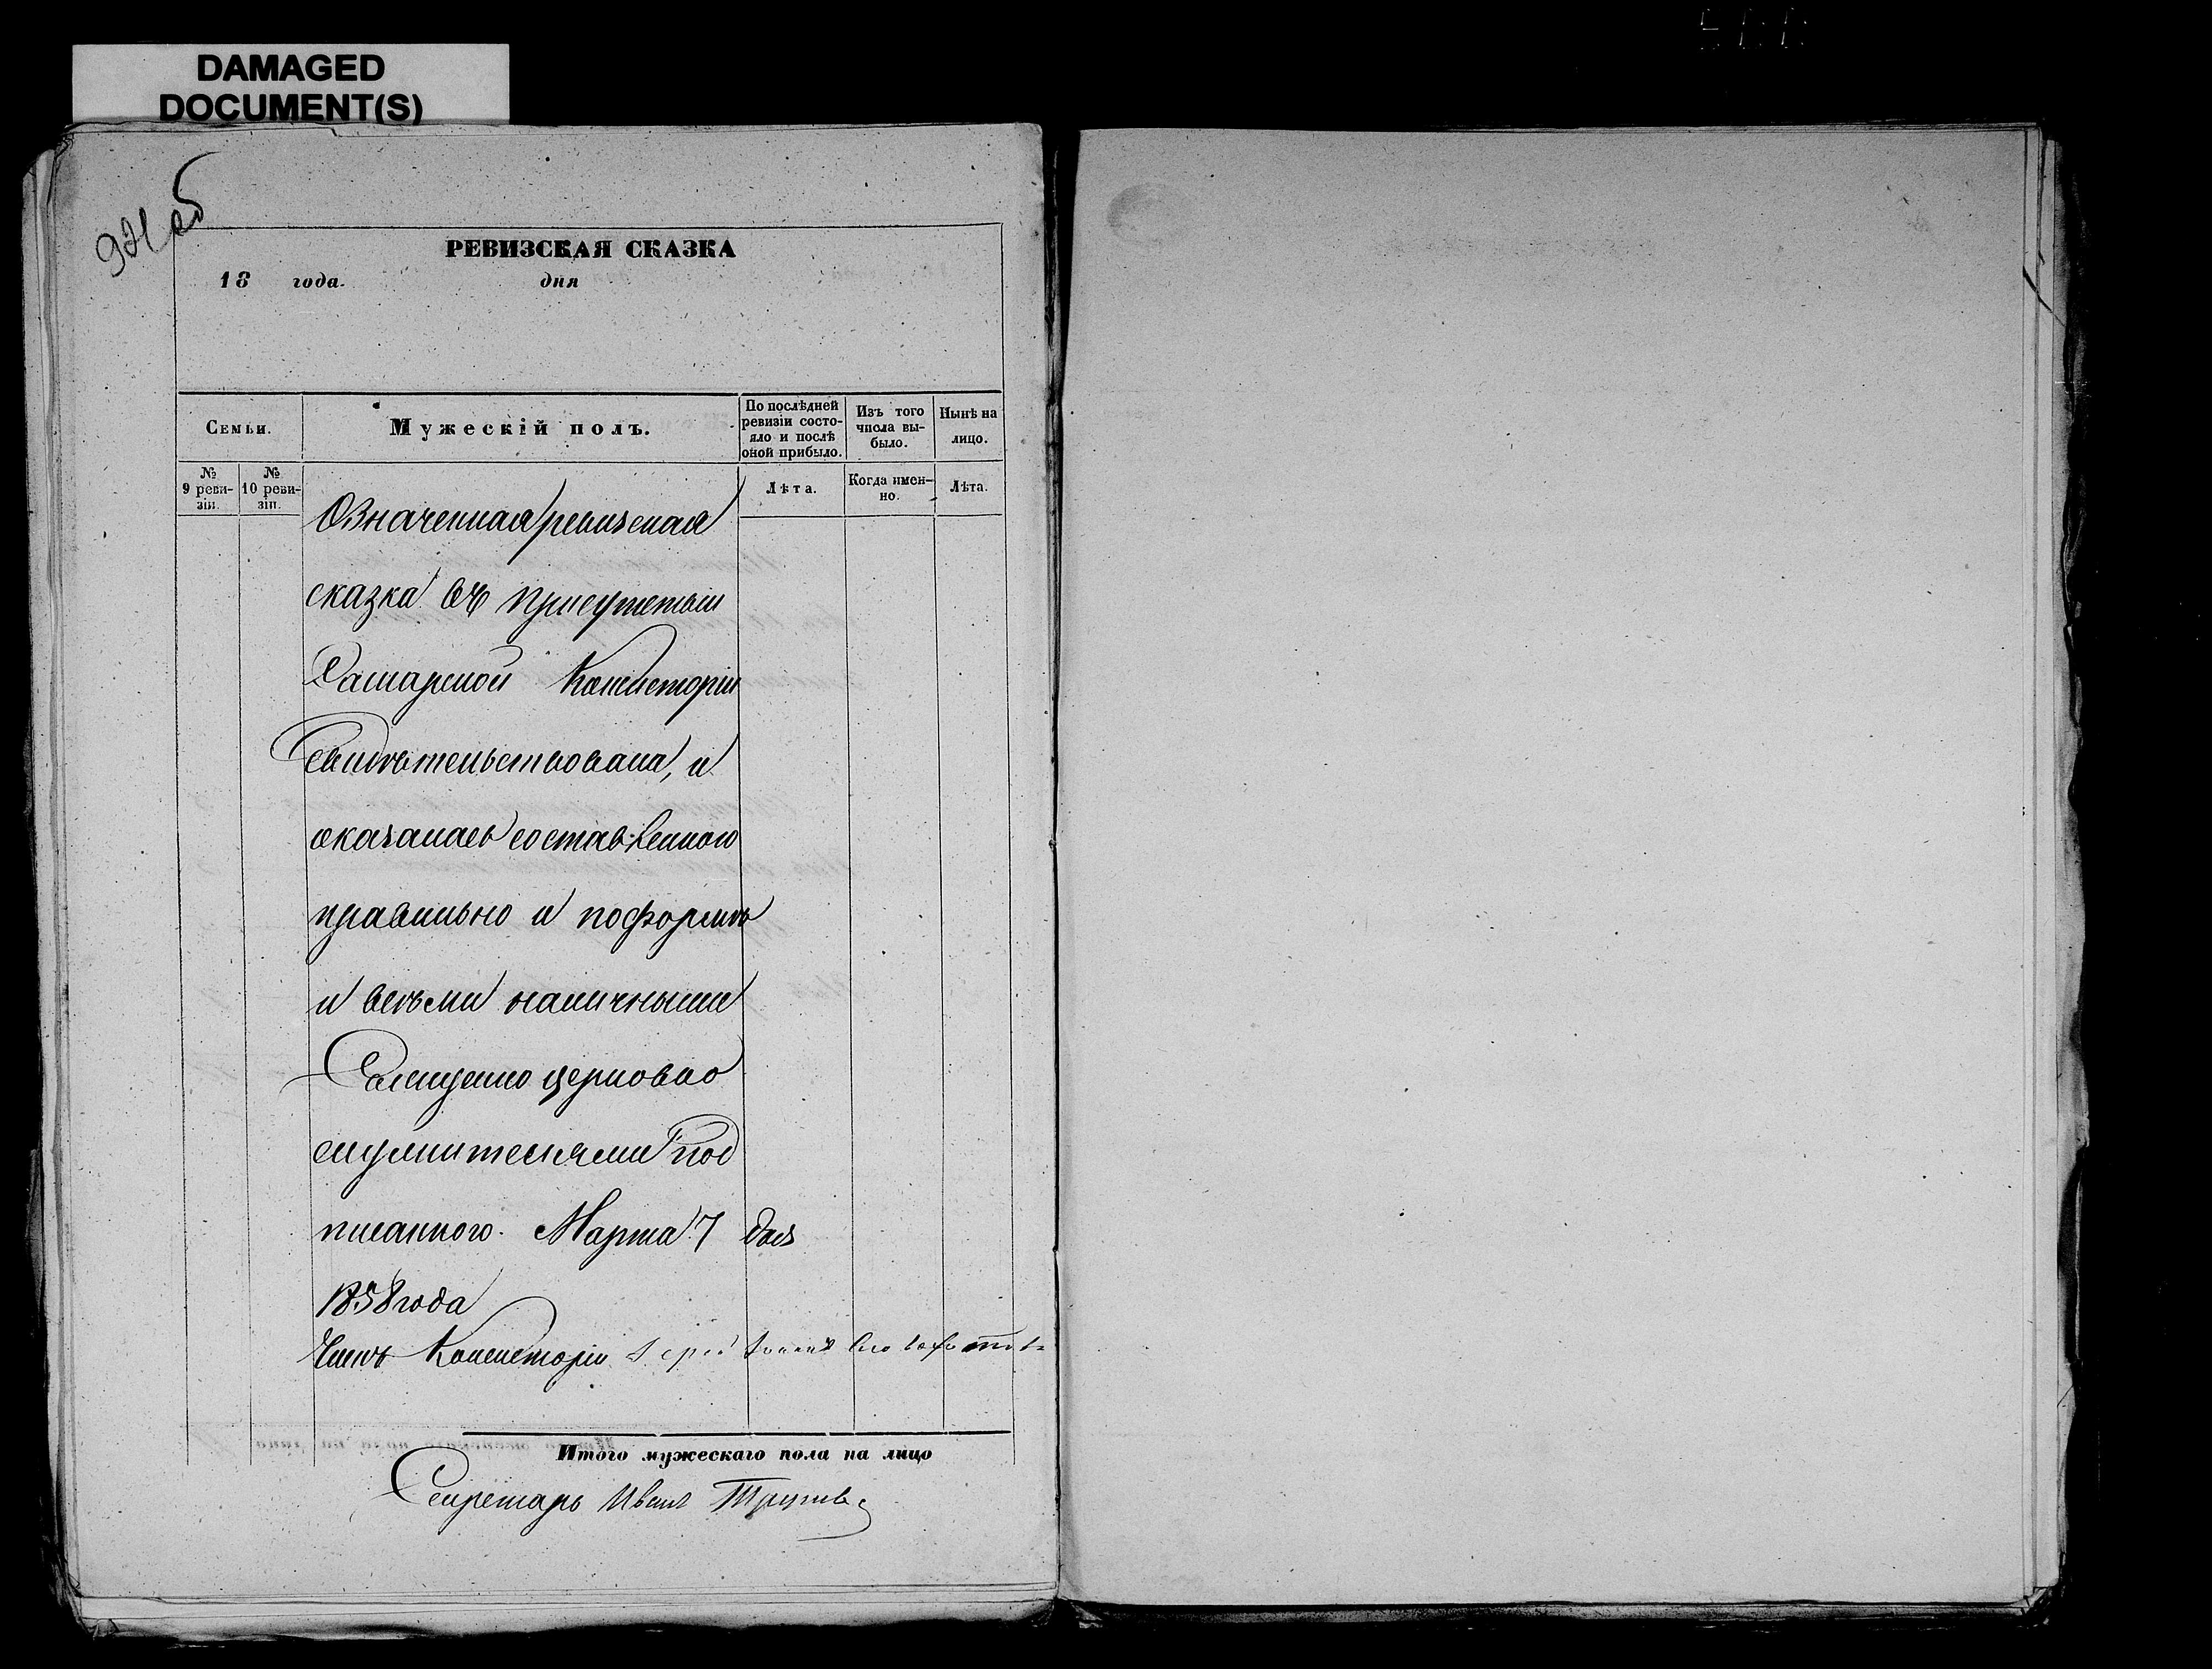 DAMAGED
DOCUMENT(S)
924 об
РЕВИЗСКАЯ СКАЗКА
18 года. дня
Семьи.
Мужескій полъ.
По послѣдней ревизіи состояло и послѣ оной прибыло.
Изъ того числа выбыло.
Нынѣ на лицо.
№ 9 ревизіи.
№ 10 ревизіи.
Лѣта.
Когда именно.
Лѣта.
Означенная ревизская
сказка въ присутствіи
Самарской Консисторіи
Свидѣтельствована, и
оказалась составленною
правильно и по формѣ
и всѣми наличными
Священно церковно
служителями под
писанною. Марта 7 дня
1858 года
Членъ Консисторіи Іерей Іоаннъ
Итого мужескаго пола на лицо
Секретарь Иванъ